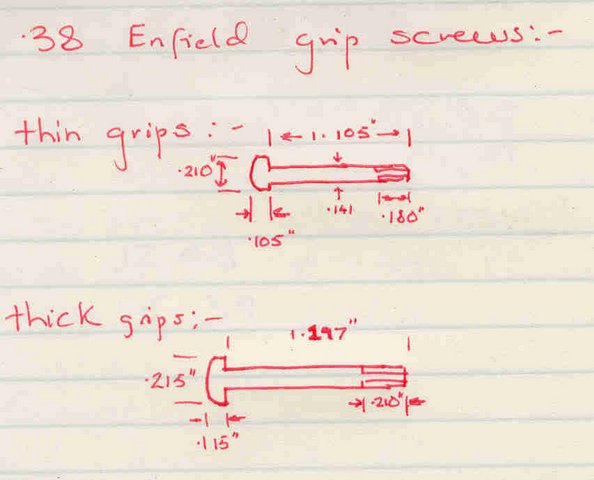 .38 Enfield grip screws:-
thin grips:-
1.105"
.210"
.141
.180"
.105"
thick grips:-
1.197"
.215"
.210"
.115"